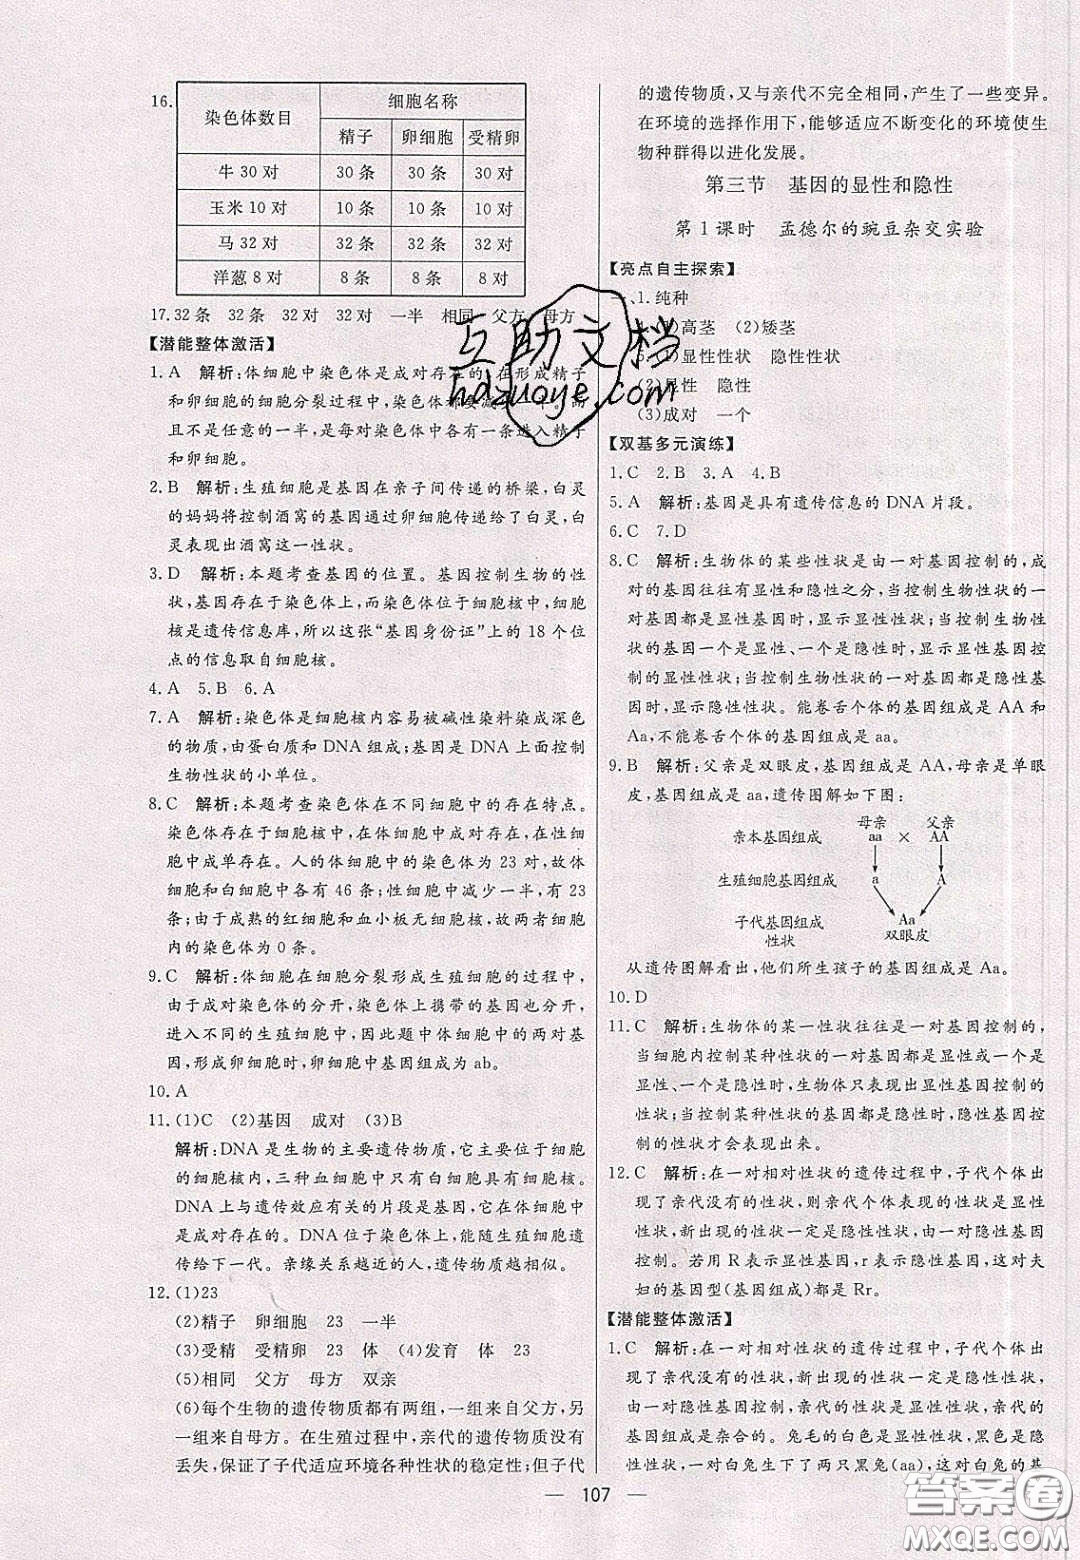 16.
染色体数目 细胞名称
精子 卵细胞 受精卵
牛 30 对 30 条 30 条 30 对
玉米 10 对 10 条 10 条 10 对
马 32 对 32 条 32 条 32 对
洋葱 8 对 8 条 8 条 8 对
17. 32 条 32 条 32 对 32 对 一半 相同 父方 母方
【潜能整体激活】
1. A 解析:体细胞中染色体是成对存在的,在形成精子
和卵细胞的细胞分裂过程中,染色体都要减少一半。而
且不是任意的一半,是每对染色体中各有一条进入精子
和卵细胞。
2. B 解析:生殖细胞是基因在亲子间传递的桥梁,白灵
的妈妈将控制酒窝的基因通过卵细胞传递给了白灵,白
灵表现出酒窝这一性状。
3. D 解析:本题考查基因的位置。基因控制生物的性
状,基因存在于染色体上,而染色体位于细胞核中,细胞
核是遗传信息库,所以这张“基因身份证”上的 18 个位
点的信息取自细胞核。
4. A 5. B 6. A
7. A 解析:染色体是细胞核内容易被碱性染料染成深色
的物质,由蛋白质和 DNA 组成;基因是 DNA 上面控制
生物性状的小单位。
8. C 解析:本题考查染色体在不同细胞中的存在特点。
染色体存在于细胞核中,在体细胞中成对存在,在性细
胞中成单存在。人的体细胞中的染色体为 23 对,故体
细胞和白细胞中各有 46 条;性细胞中减少一半,有 23
条;由于成熟的红细胞和血小板无细胞核,故两者细胞
内的染色体为 0 条。
9. C 解析:体细胞在细胞分裂形成生殖细胞的过程中,
由于成对染色体的分开,染色体上携带的基因也分开,
进入不同的生殖细胞中,因此题中体细胞中的两对基
因,形成卵细胞时,卵细胞中基因组成为 ab。
10. A
11. (1)C (2)基因 成对 (3)B
解析:DNA 是生物的主要遗传物质,它主要位于细胞
的细胞核内,三种血细胞中只有白细胞具有细胞核。
DNA 上与遗传效应有关的片段是基因,它在体细胞中
是成对存在的。DNA 位于染色体上,能随生殖细胞遗
传给下一代。亲缘关系越近的人,遗传物质越相似。
12. (1)23
(2)精子 卵细胞 23 一半
(3)受精 受精卵 23 体 (4)发育 体 23
(5)相同 父方 母方 双亲
(6)每个生物的遗传物质都有两组,一组来自父方,另
一组来自母方。在生殖过程中,亲代的遗传物质没有
丢失,保证了子代适应环境各种性状的稳定性;但子代
的遗传物质,又与亲代不完全相同,产生了一些变异。
在环境的选择作用下,能够适应不断变化的环境使生
物种群得以进化发展。
第三节 基因的显性和隐性
第 1 课时 孟德尔的豌豆杂交实验
【亮点自主探索】
一、1. 纯种
(1)高茎 (2)矮茎
5. (1)显性性状 隐性性状
(2)显性 隐性
(3)成对 一个
【双基多元演练】
1. C 2. B 3. A 4. B
5. A 解析:基因是具有遗传信息的 DNA 片段。
6. C 7. D
8. C 解析:生物体的某些性状是由一对基因控制的,成
对的基因往往有显性和隐性之分,当控制生物性状的一
对基因都是显性基因时,显示显性性状;当控制生物性状
的基因一个是显性、一个是隐性时,显示显性基因控
制的显性性状;当控制生物性状的一对基因都是隐性基
因时,显示隐性性状。能卷舌个体的基因组成是 AA 和
Aa,不能卷舌个体的基因组成是 aa。
9. B 解析:父亲是双眼皮,基因组成是 AA,母亲是单眼
皮,基因组成是 aa,遗传图解如下图:
母亲 父亲
亲本基因组成 aa × AA
生殖细胞基因组成 a A
子代基因组成 Aa
性状 双眼皮
从遗传图解看出,他们所生孩子的基因组成是 Aa。
10. D
11. C 解析:生物体的某一性状往往是一对基因控制的,
当细胞内控制某种性状的一对基因都是显性或一个是
显性、一个是隐性时,生物体只表现出显性基因控制的
性状;当控制某种性状的基因都是隐性时,隐性基因控制
的性状才会表现出来。
12. C 解析:在一对相对性状的遗传过程中,子代个体出
现了亲代没有的性状,则亲代个体表现的性状是显性
性状,新出现的性状一定是隐性性状,由一对隐性基因
控制。若用 R 表示显性基因,r 表示隐性基因,这对夫
妇的基因型(基因组成)都是 Rr。
【潜能整体激活】
1. C 解析:在一对相对性状的遗传过程中,子代个体出
现了亲代没有的性状,新出现的性状一定是隐性性状,
由一对隐性基因控制,亲代的性状是显性性状,亲代的
基因组成是杂合的。兔毛的白色是显性性状,黑色是隐
性性状,一对白兔生下了两只黑兔(aa),这对白兔的基
107
互助文档
hdzuoye.com
答案圈
MXQE.COM